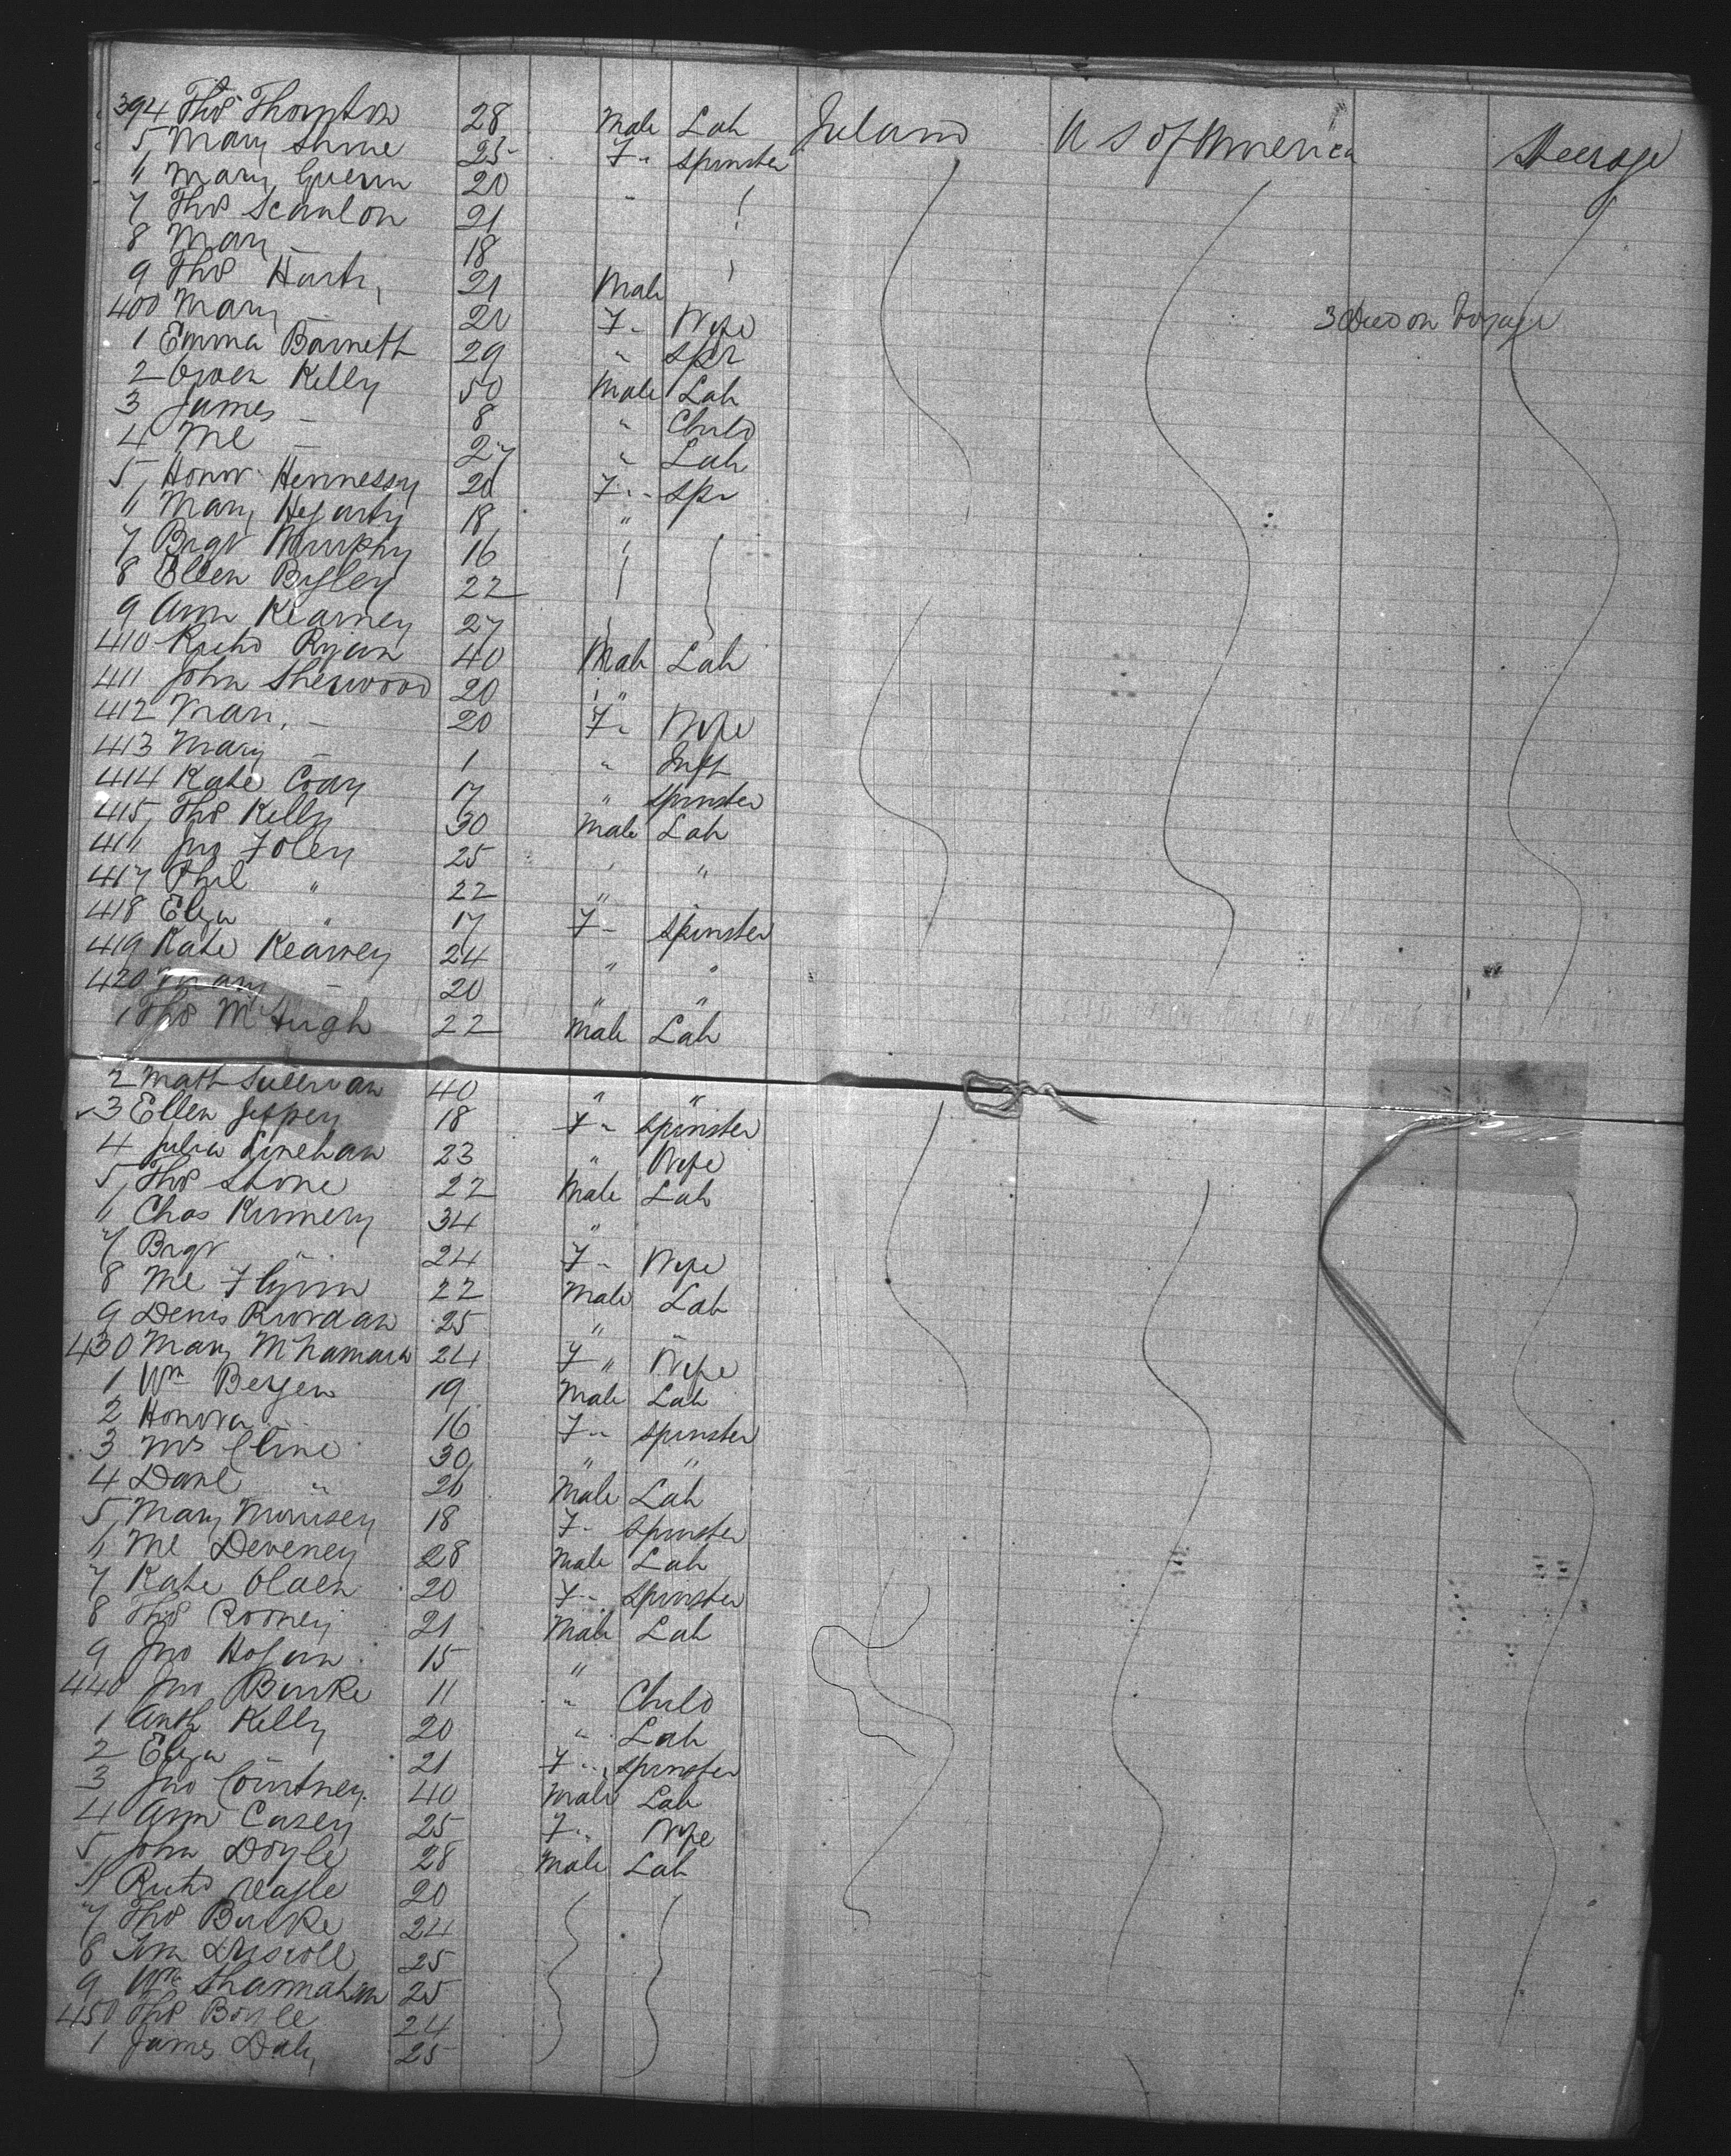 394 Thos Thornton 28 Male Lab Ireland U S of America Steerage
5 Mary Shine 25 F " Spinster
6 Mary Guerin 20 "
7 Thos Scanlon 21
8 Mary — 18
9 Thos Harty 21 Male
400 Mary — 20 F " Wife 3 Died on Voyage
1 Emma Barnett 29 " Spr
2 Owen Kelly 50 Male Lab
3 James — 8 " Child
4 Ml — 27 " Lab
5 Honor Hennessy 20 F " Spr
6 Mary Hegarty 18 "
7 Brgt Murphy 16
8 Ellen Begley 22
9 Ann Kearney 27
410 Richd Ryan 40 Male Lab
411 John Sherwood 20 "
412 Mary — 20 F " Wife
413 Mary — 1 " Inft
414 Kate Coay 17 " Spinster
415 Thos Kelly 30 Male Lab
416 Jno Foley 25 " "
417 Phil " 22 "
418 Eliza " 17 F " Spinster
419 Kate Kearney 24 " "
420 Mary — 20 " "
1 Thos McHugh 22 Male Lab
2 Math Sullivan 40 " "
3 Ellen Jeffrey 18 F " Spinster
4 Julia Linehan 23 " Wife
5 Thos Shine 22 Male Lab
6 Chas Kinnery 34 "
7 Brgt " 24 F " Wife
8 Ml Flynn 22 Male Lab
9 Denis Riordan 25 " "
430 Mary McNamara 24 F " Wife
1 Wm Bergen 19 Male Lab
2 Honora 16 F " Spinster
3 Ms Cline 30 " "
4 Danl " 26 Male Lab
5 Mary Morrisey 18 F " Spinster
6 Ml Deveney 28 Male Lab
7 Kate Olden 20 F " Spinster
8 Thos Rooney 21 Male Lab
9 Jno Hogan 15 "
440 Jno Burke 11 " Child
1 Anth Kelly 20 " Lab
2 Eliza — 21 F " Spinster
3 Jno Courtney 40 Male Lab
4 Ann Casey 25 F " Wife
5 John Doyle 28 Male Lab
6 Richd Nagle 20
7 Thos Burke 24
8 Tim Driscoll 25
9 Wm Shannahan 25
450 Thos Boyle 24
1 James Daly 25